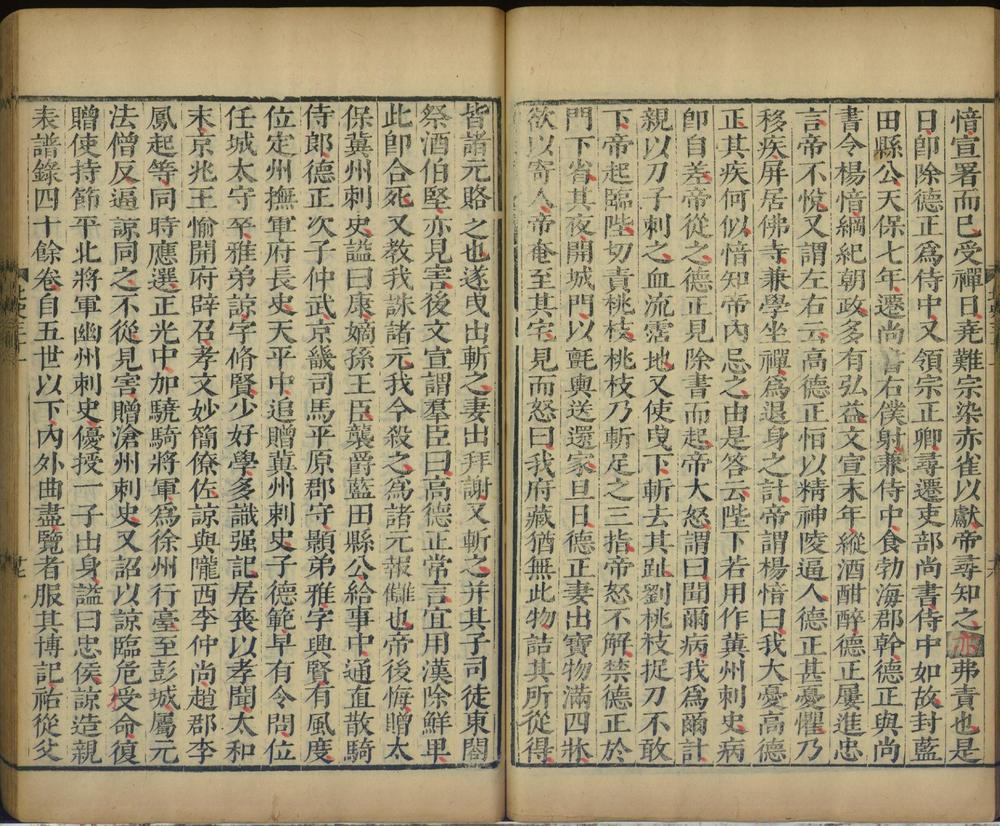 愔宣署而已受禪日堯難宗染赤雀以獻帝尋知之亦弗責也是
日卽除德正爲侍中又領宗正卿尋遷吏部尚書侍中如故封藍
田縣公天保七年遷尚書右僕射兼侍中食勃海郡幹德正與尚
書令楊愔綱紀朝政多有弘益文宣末年縱酒酣醉德正屢進忠
言帝不悅又謂左右云高德正恒以精神陵逼人德正甚憂懼乃
移疾屏居佛寺兼學坐禪爲退身之計帝謂楊愔曰我大憂高德
正其疾何似愔知帝內忌之由是答云陛下若用作冀州刺史病
卽自差帝從之德正見除書而起帝大怒謂曰聞爾病我爲爾計
親以刀子刺之血流霑地又使曳下斬去其趾劉桃枝捉刀不敢
下帝起臨陛切責桃枝桃枝乃斬足之三指帝怒不解禁德正於
門下省其夜開城門以氈輿送還家旦日德正妻出寶物滿四牀
欲以寄人帝奄至其宅見而怒曰我府藏猶無此物詰其所從得
皆諸元賂之也遂曳出斬之妻出拜謝又斬之并其子司徒東閤
祭酒伯堅亦見害後文宣謂羣臣曰高德正常言宜用漢除鮮卑
此卽合死又教我誅諸元我今殺之爲諸元報讎也帝後悔贈太
保冀州刺史謚曰康嫡孫王臣襲爵藍田縣公給事中通直散騎
侍郎德正次子仲武京畿司馬平原郡守顯弟雅字興賢有風度
位定州撫軍府長史天平中追贈冀州刺史子德範早有令問位
任城太守卒雅弟諒字脩賢少好學多識强記居喪以孝聞太和
末京兆王愉開府辟召孝文妙簡僚佐諒與隴西李仲尚趙郡李
鳳起等同時應選正光中加驍騎將軍爲徐州行臺至彭城屬元
法僧反逼諒同之不從見害贈滄州刺史又詔以諒臨危受命復
贈使持節平北將軍幽州刺史優授一子出身謚曰忠侯諒造親
表譜錄四十餘卷自五世以下內外曲盡覽者服其博記祐從父